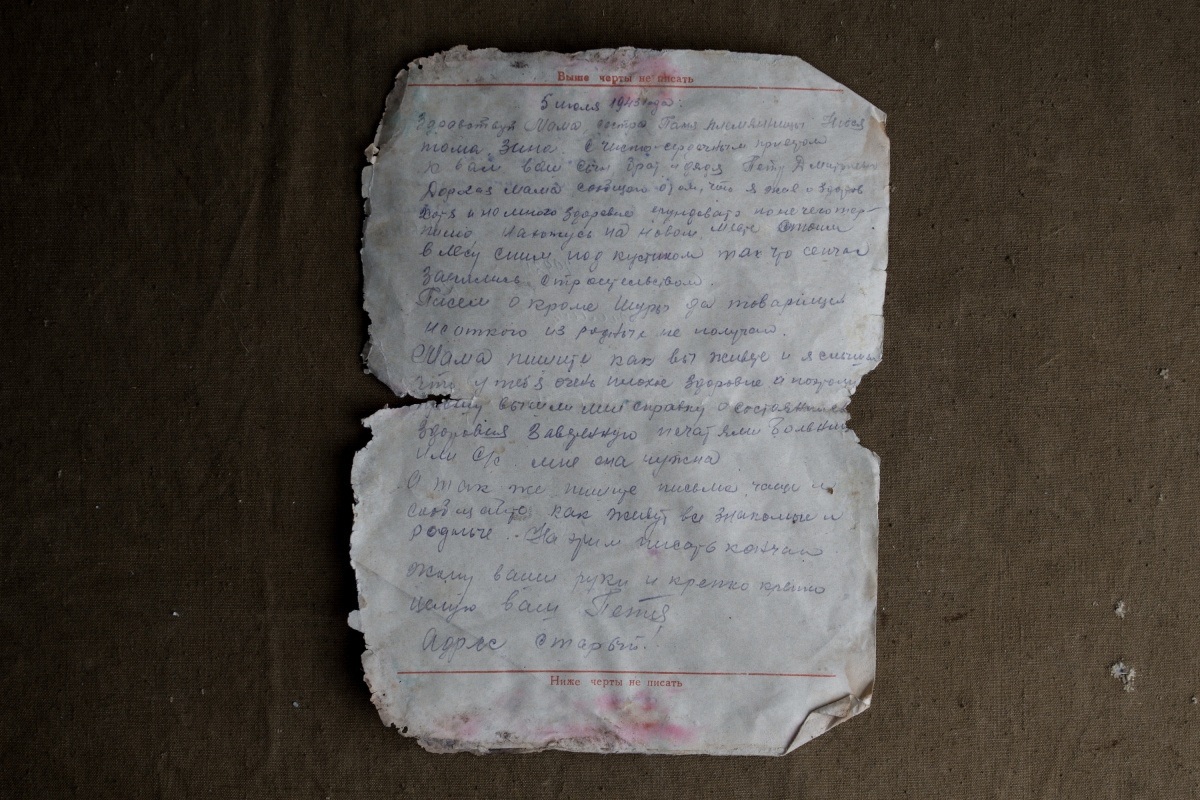 Выше черты не писать
5 июля 1945 года.
Здравствуй Мама сестра Галя племянницы Нюся
тома Зина. С чисто-сердечным приветом
к вам ваш сын брат и дядя Петр
Дорогая мама сообщаю о том, что я жив и здоров
Хотя и не много здоровье
нахожусь на новом месте стоим
в лесу спим под кустиком так что сейчас
занялись строительством.
Писем о кроме Шуры да товарищей
ни откого из родных не получаю.
Мама пишите как вы живете и я слышал
что у тебя очень плохое здоровье и поэтому
прошу вышли мне справку о состоянии
здоровия заверенную печатями больницы
или С/с мне она нужна
А так же пишите письма чаще и
сообщайте как живут все знакомые и
родные. На этим писать кончаю
Жму ваши руки и крепко крепко
целую ваш Петя
Адрес старый!
Ниже черты не писать